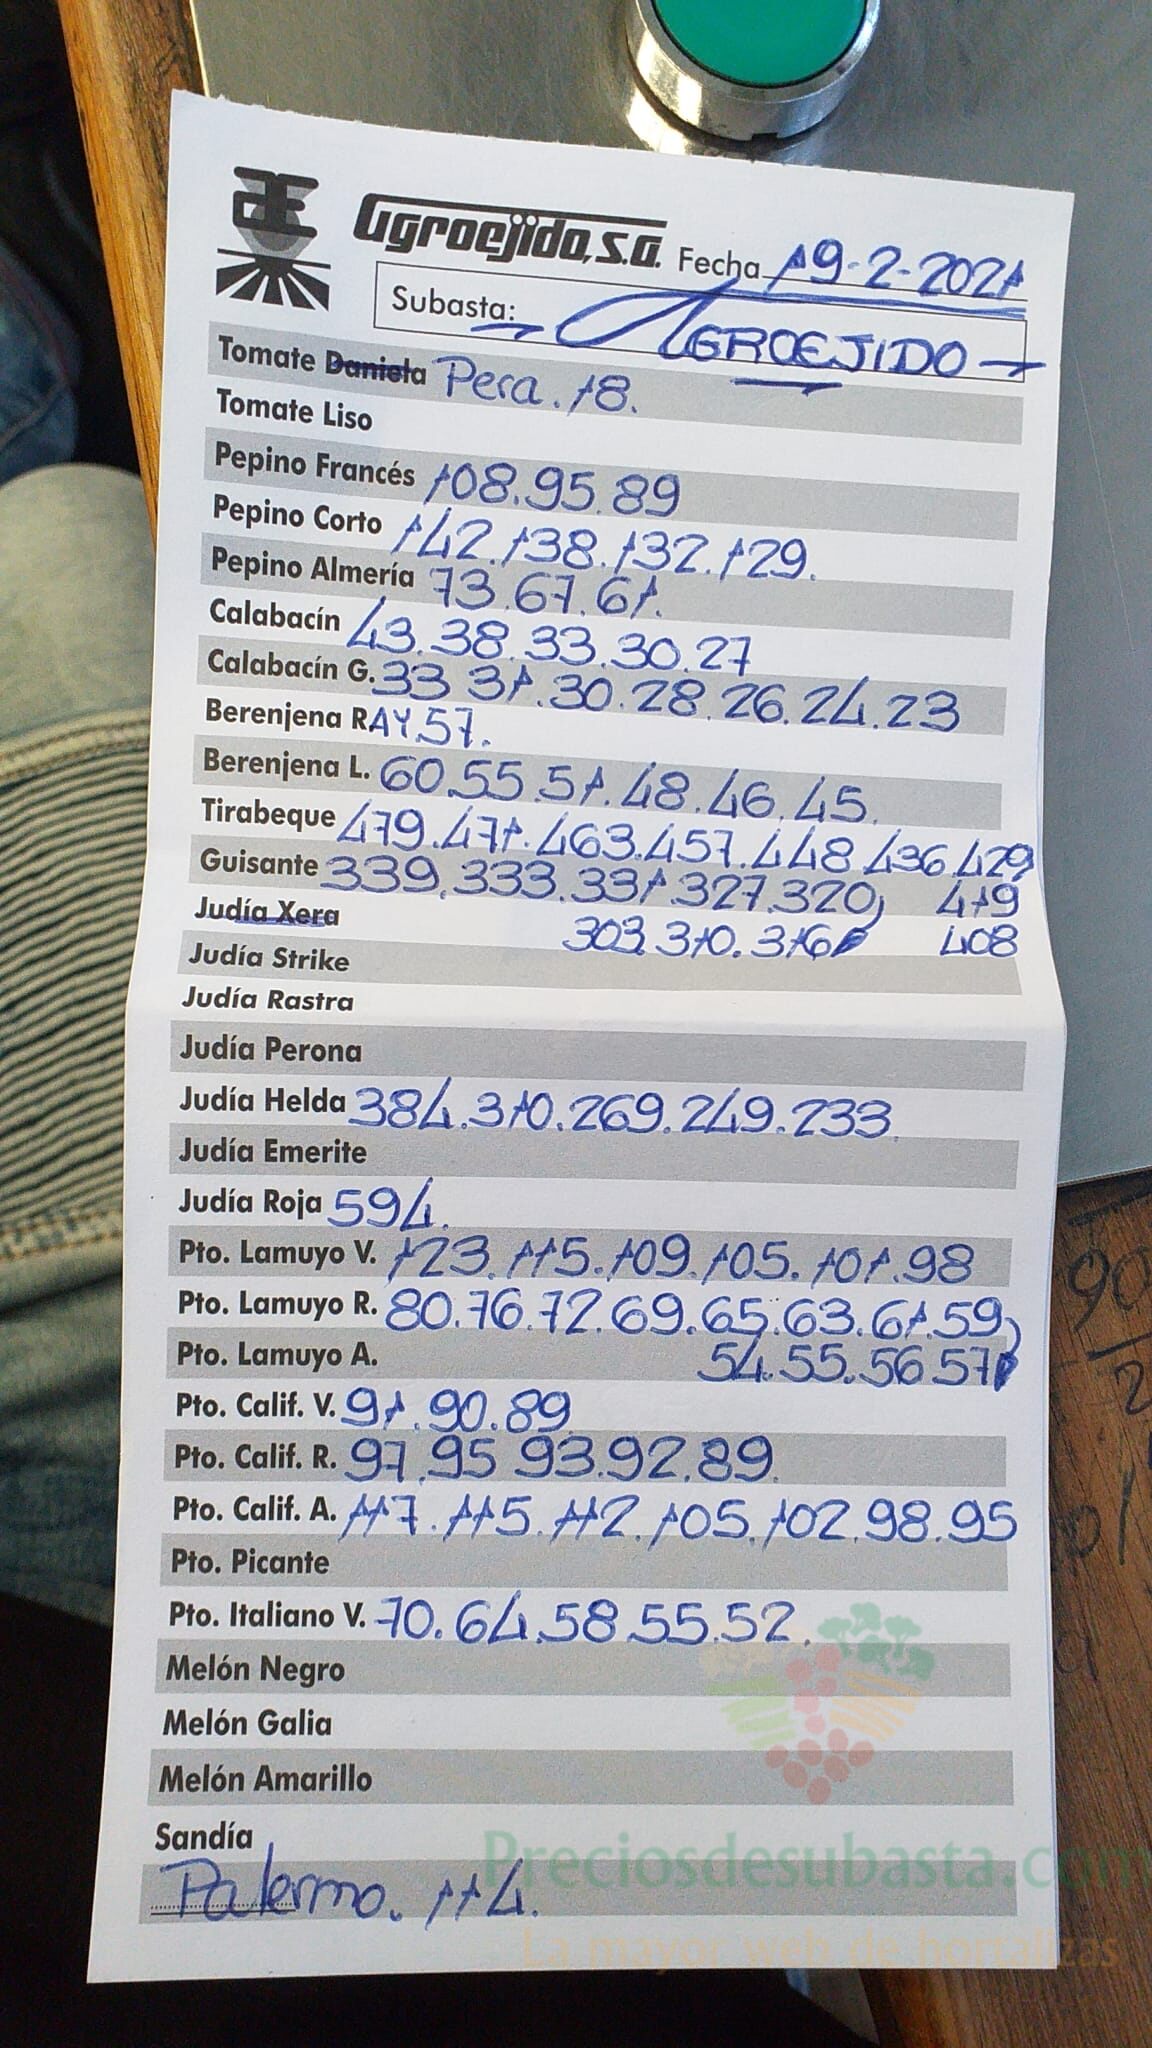 Agroejido, S.A. Fecha 19-2-2021
Subasta: AGROEJIDO
Tomate Daniela Pera. 18.
Tomate Liso
Pepino Francés 108.95.89
Pepino Corto 142.138.132.129.
Pepino Almería 73.67.61.
Calabacín 43.38.33.30.27
Calabacín G. 33 31.30.28.26.24.23
Berenjena RAY.57.
Berenjena L. 60.55.51.48.46.45.
Tirabeque 479.471.463.457.448.436.429
Guisante 339.333.331.327.320) 419
Judía Xera 303.310.316 408
Judía Strike
Judía Rastra
Judía Perona
Judía Helda 384.310.269.249.233.
Judía Emerite
Judía Roja 594.
Pto. Lamuyo V. 123.115.109.105.101.98
Pto. Lamuyo R. 80.76.72.69.65.63.61.59)
Pto. Lamuyo A. 54.55.56.57
Pto. Calif. V. 91.90.89
Pto. Calif. R. 97.95 93.92.89.
Pto. Calif. A. 117.115.112.105.102.98.95
Pto. Picante
Pto. Italiano V. 70.64.58.55.52.
Melón Negro
Melón Galia
Melón Amarillo
Sandía
Palermo. 114.
Preciosdesubasta.com
La mayor web de hortalizas